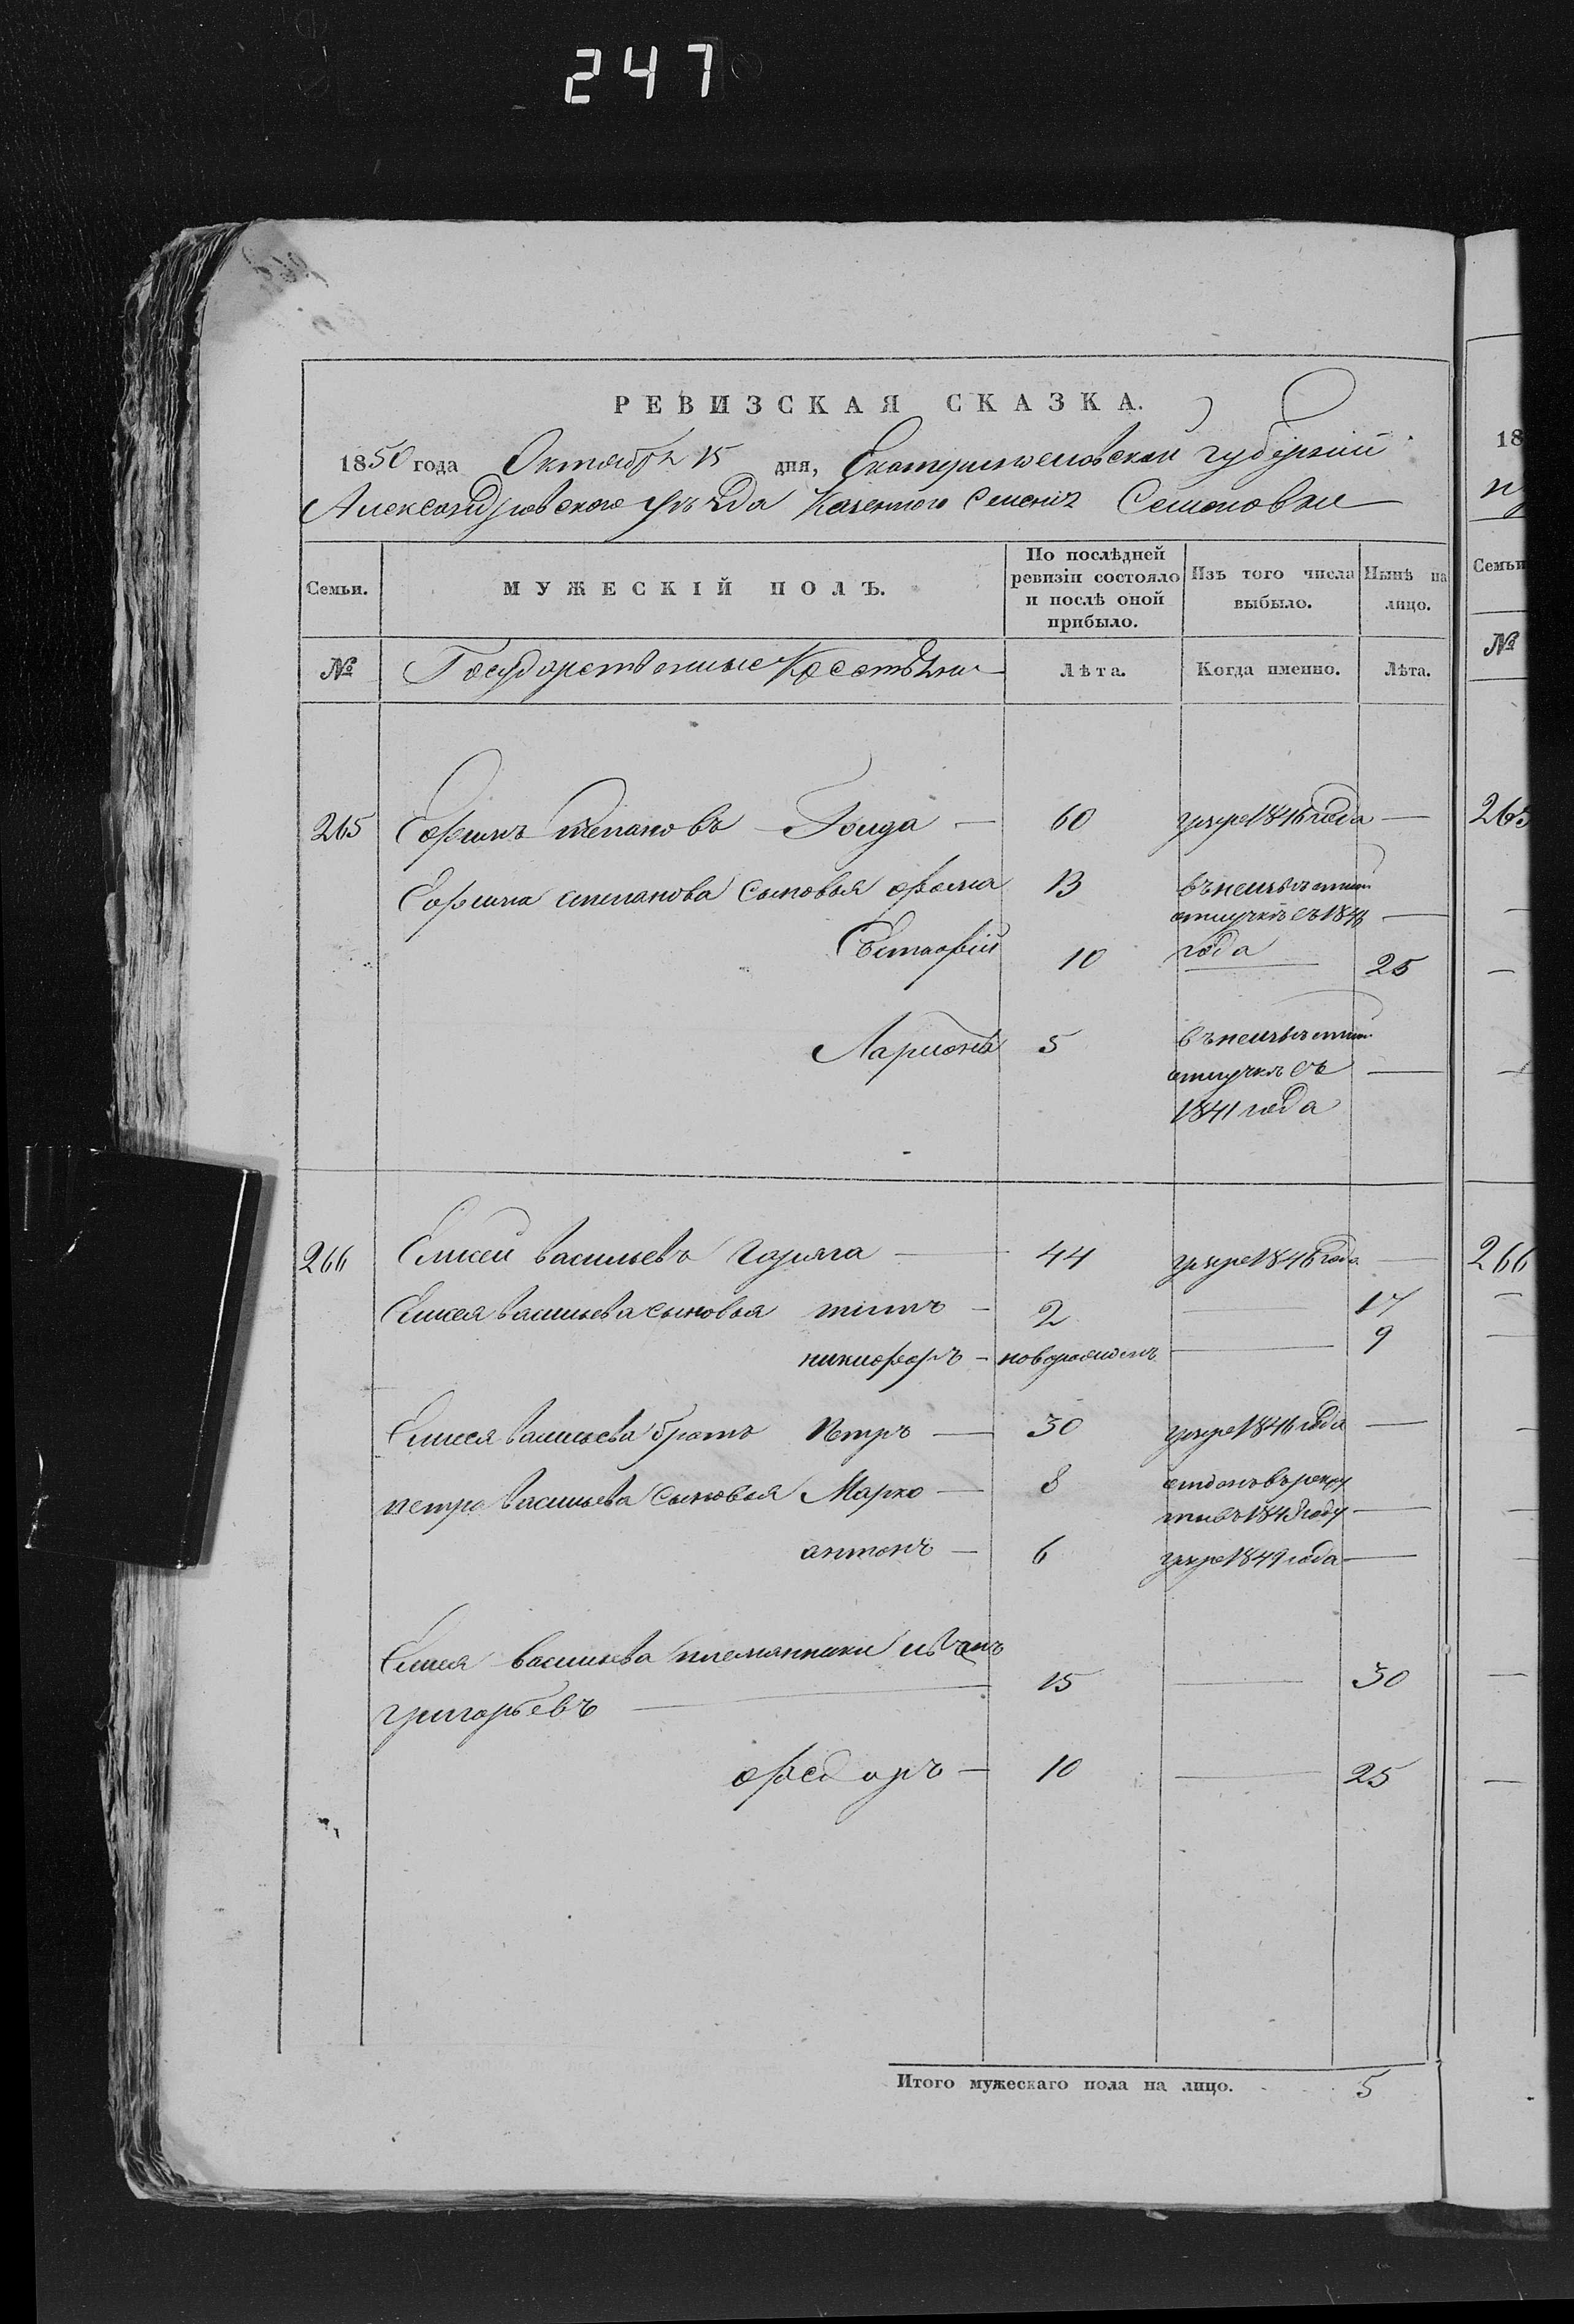 247
РЕВИЗСКАЯ СКАЗКА.
1850 года Октября 15 дня, Екатеринославской губерніи
Александровского уѣзда Казенного Селенія Семеновки
Семьи. МУЖЕСКІЙ ПОЛЪ. По послѣдней ревизіи состояло и послѣ оной прибыло. Изъ того числа выбыло. Нынѣ на лицо.
№ Государственные Крестьяне Лѣта. Когда именно. Лѣта.
265 Ефимъ Степановъ 60 умре 1846 года —
Ефима степанова сыновья фома 13 въ неизвѣстной
отлучкѣ съ 1848 —
года
Евстафій 10 — 25
Ларионъ 5 въ неизвѣстной
отлучкѣ съ —
1841 года
266 Елисей васильевъ горяга — 44 умре 1848 года —
Елисея васильева сыновья титъ — 2 — 17
никифоръ — новорожденъ — 9
Елисея васильева братъ Петръ — 30 умре 1846 года —
петра васильева сыновья Марко — 8 отданъ въ рекру
ты въ 1843 году —
антонъ — 6 умре 1849 года —
Елисея васильева племянники иванъ
григорьевъ — 15 — 30
федоръ — 10 — 25
Итого мужескаго пола на лицо. 5
18
Семьи
№
265
266